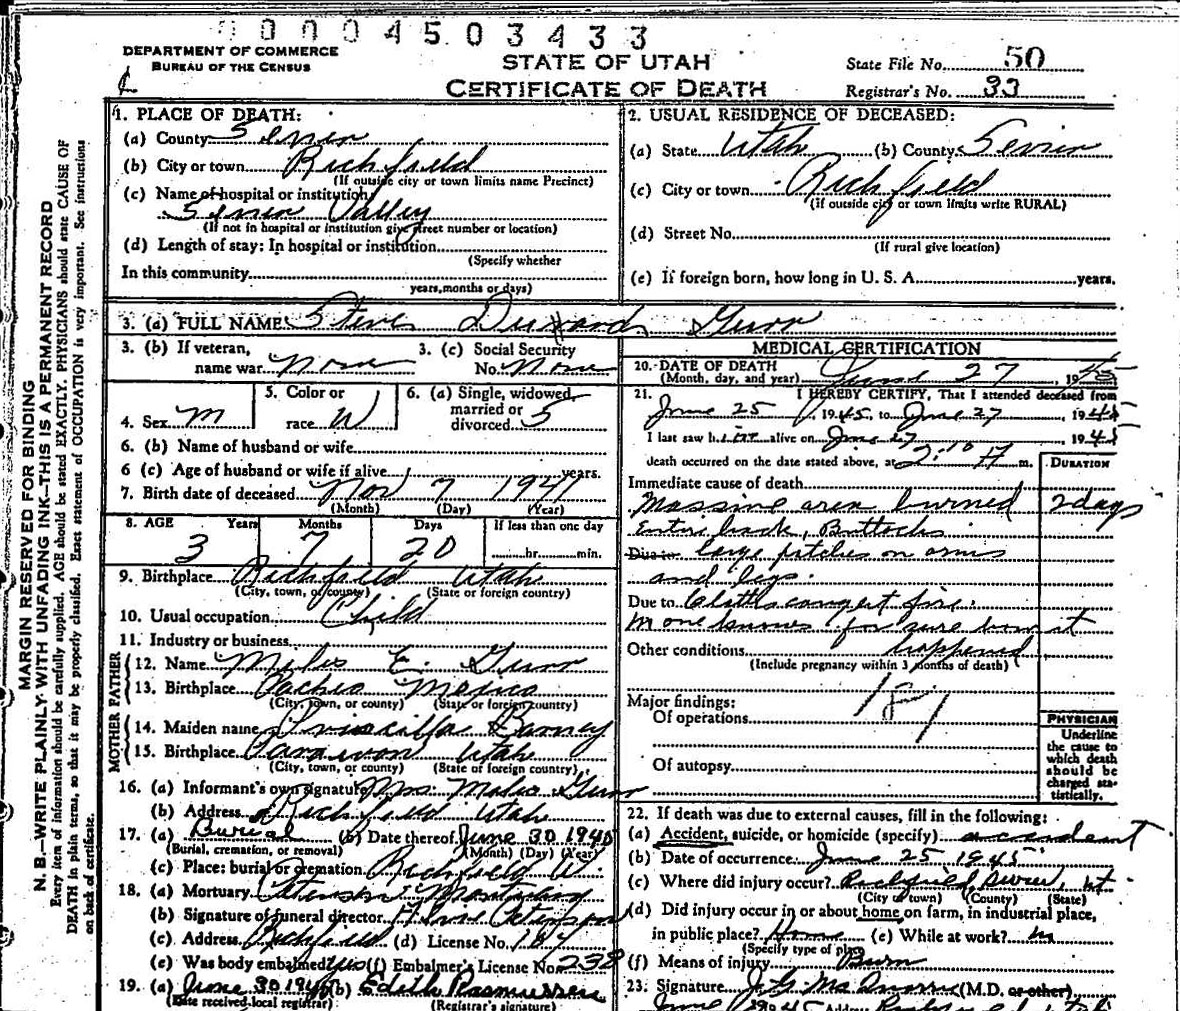 00004503433
DEPARTMENT OF COMMERCE
BUREAU OF THE CENSUS
STATE OF UTAH
CERTIFICATE OF DEATH
State File No. 50
Registrar's No. 33
MARGIN RESERVED FOR BINDING
N. B.—WRITE PLAINLY WITH UNFADING INK—THIS IS A PERMANENT RECORD
Every item of information should be carefully supplied. AGE should be stated EXACTLY. PHYSICIANS should state CAUSE OF
DEATH in plain terms, so that it may be properly classified. Exact statement of OCCUPATION is very important. See instructions
on back of certificate.
1. PLACE OF DEATH:
(a) County Sevier
(b) City or town Richfield
(If outside city or town limits name Precinct)
(c) Name of hospital or institution
Sevier Valley
(If not in hospital or institution give street number or location)
(d) Length of stay: In hospital or institution
(Specify whether
In this community
years, months or days)
2. USUAL RESIDENCE OF DECEASED:
(a) State Utah (b) County Sevier
(c) City or town Richfield
(If outside city or town limits write RURAL)
(d) Street No.
(If rural give location)
(e) If foreign born, how long in U. S. A. years.
3. (a) FULL NAME Steven Durward Gurr
3. (b) If veteran, name war None
3. (c) Social Security No. None
4. Sex M
5. Color or race W
6. (a) Single, widowed, married or divorced S
6. (b) Name of husband or wife
6 (c) Age of husband or wife if alive years.
7. Birth date of deceased Nov 7 1941
(Month) (Day) (Year)
8. AGE Years Months Days If less than one day
3 7 20 hr. min.
9. Birthplace Richfield Utah
(City, town, or county) (State or foreign country)
10. Usual occupation Child
11. Industry or business
FATHER
12. Name Miles E. Gurr
13. Birthplace Pacheo Mexico
(City, town, or county) (State or foreign country)
MOTHER
14. Maiden name Priscilla Barney
15. Birthplace Utah
(City, town, or county) (State or foreign country)
16. (a) Informant's own signature Mrs. Gurr
(b) Address Richfield Utah
17. (a) Burial (b) Date thereof June 30 1945
(Burial, cremation, or removal) (Month) (Day) (Year)
(c) Place: burial or cremation Richfield U.
18. (a) Mortuary
(b) Signature of funeral director
(c) Address Richfield (d) License No. 187
(e) Was body embalmed yes (f) Embalmer's License No. 238
19. (a) June 30 1945 (b) Edith Rasmussen
(Date received local registrar) (Registrar's signature)
MEDICAL CERTIFICATION
20. DATE OF DEATH
(Month, day, and year) June 27, 1945
21. I HEREBY CERTIFY, That I attended deceased from
June 25, 1945, to June 27, 1945
I last saw him alive on June 27, 1945
death occurred on the date stated above, at 2:10 A m.
DURATION
Immediate cause of death
Massive area burned 2 days
Entire back, Buttocks
Due to large patches on arms
and legs.
Due to Cloths caught fire.
no one knows for sure how it
Other conditions happened
(Include pregnancy within 3 months of death)
181
Major findings:
Of operations
Of autopsy
PHYSICIAN
Underline
the cause to
which death
should be
charged sta-
tistically.
22. If death was due to external causes, fill in the following:
(a) Accident, suicide, or homicide (specify) accident
(b) Date of occurrence June 25 1945
(c) Where did injury occur? Richfield, Sevier, Ut
(City or town) (County) (State)
(d) Did injury occur in or about home on farm, in industrial place,
in public place? Home (e) While at work?
(Specify type of place)
(f) Means of injury Burn
23. Signature (M.D. or other)